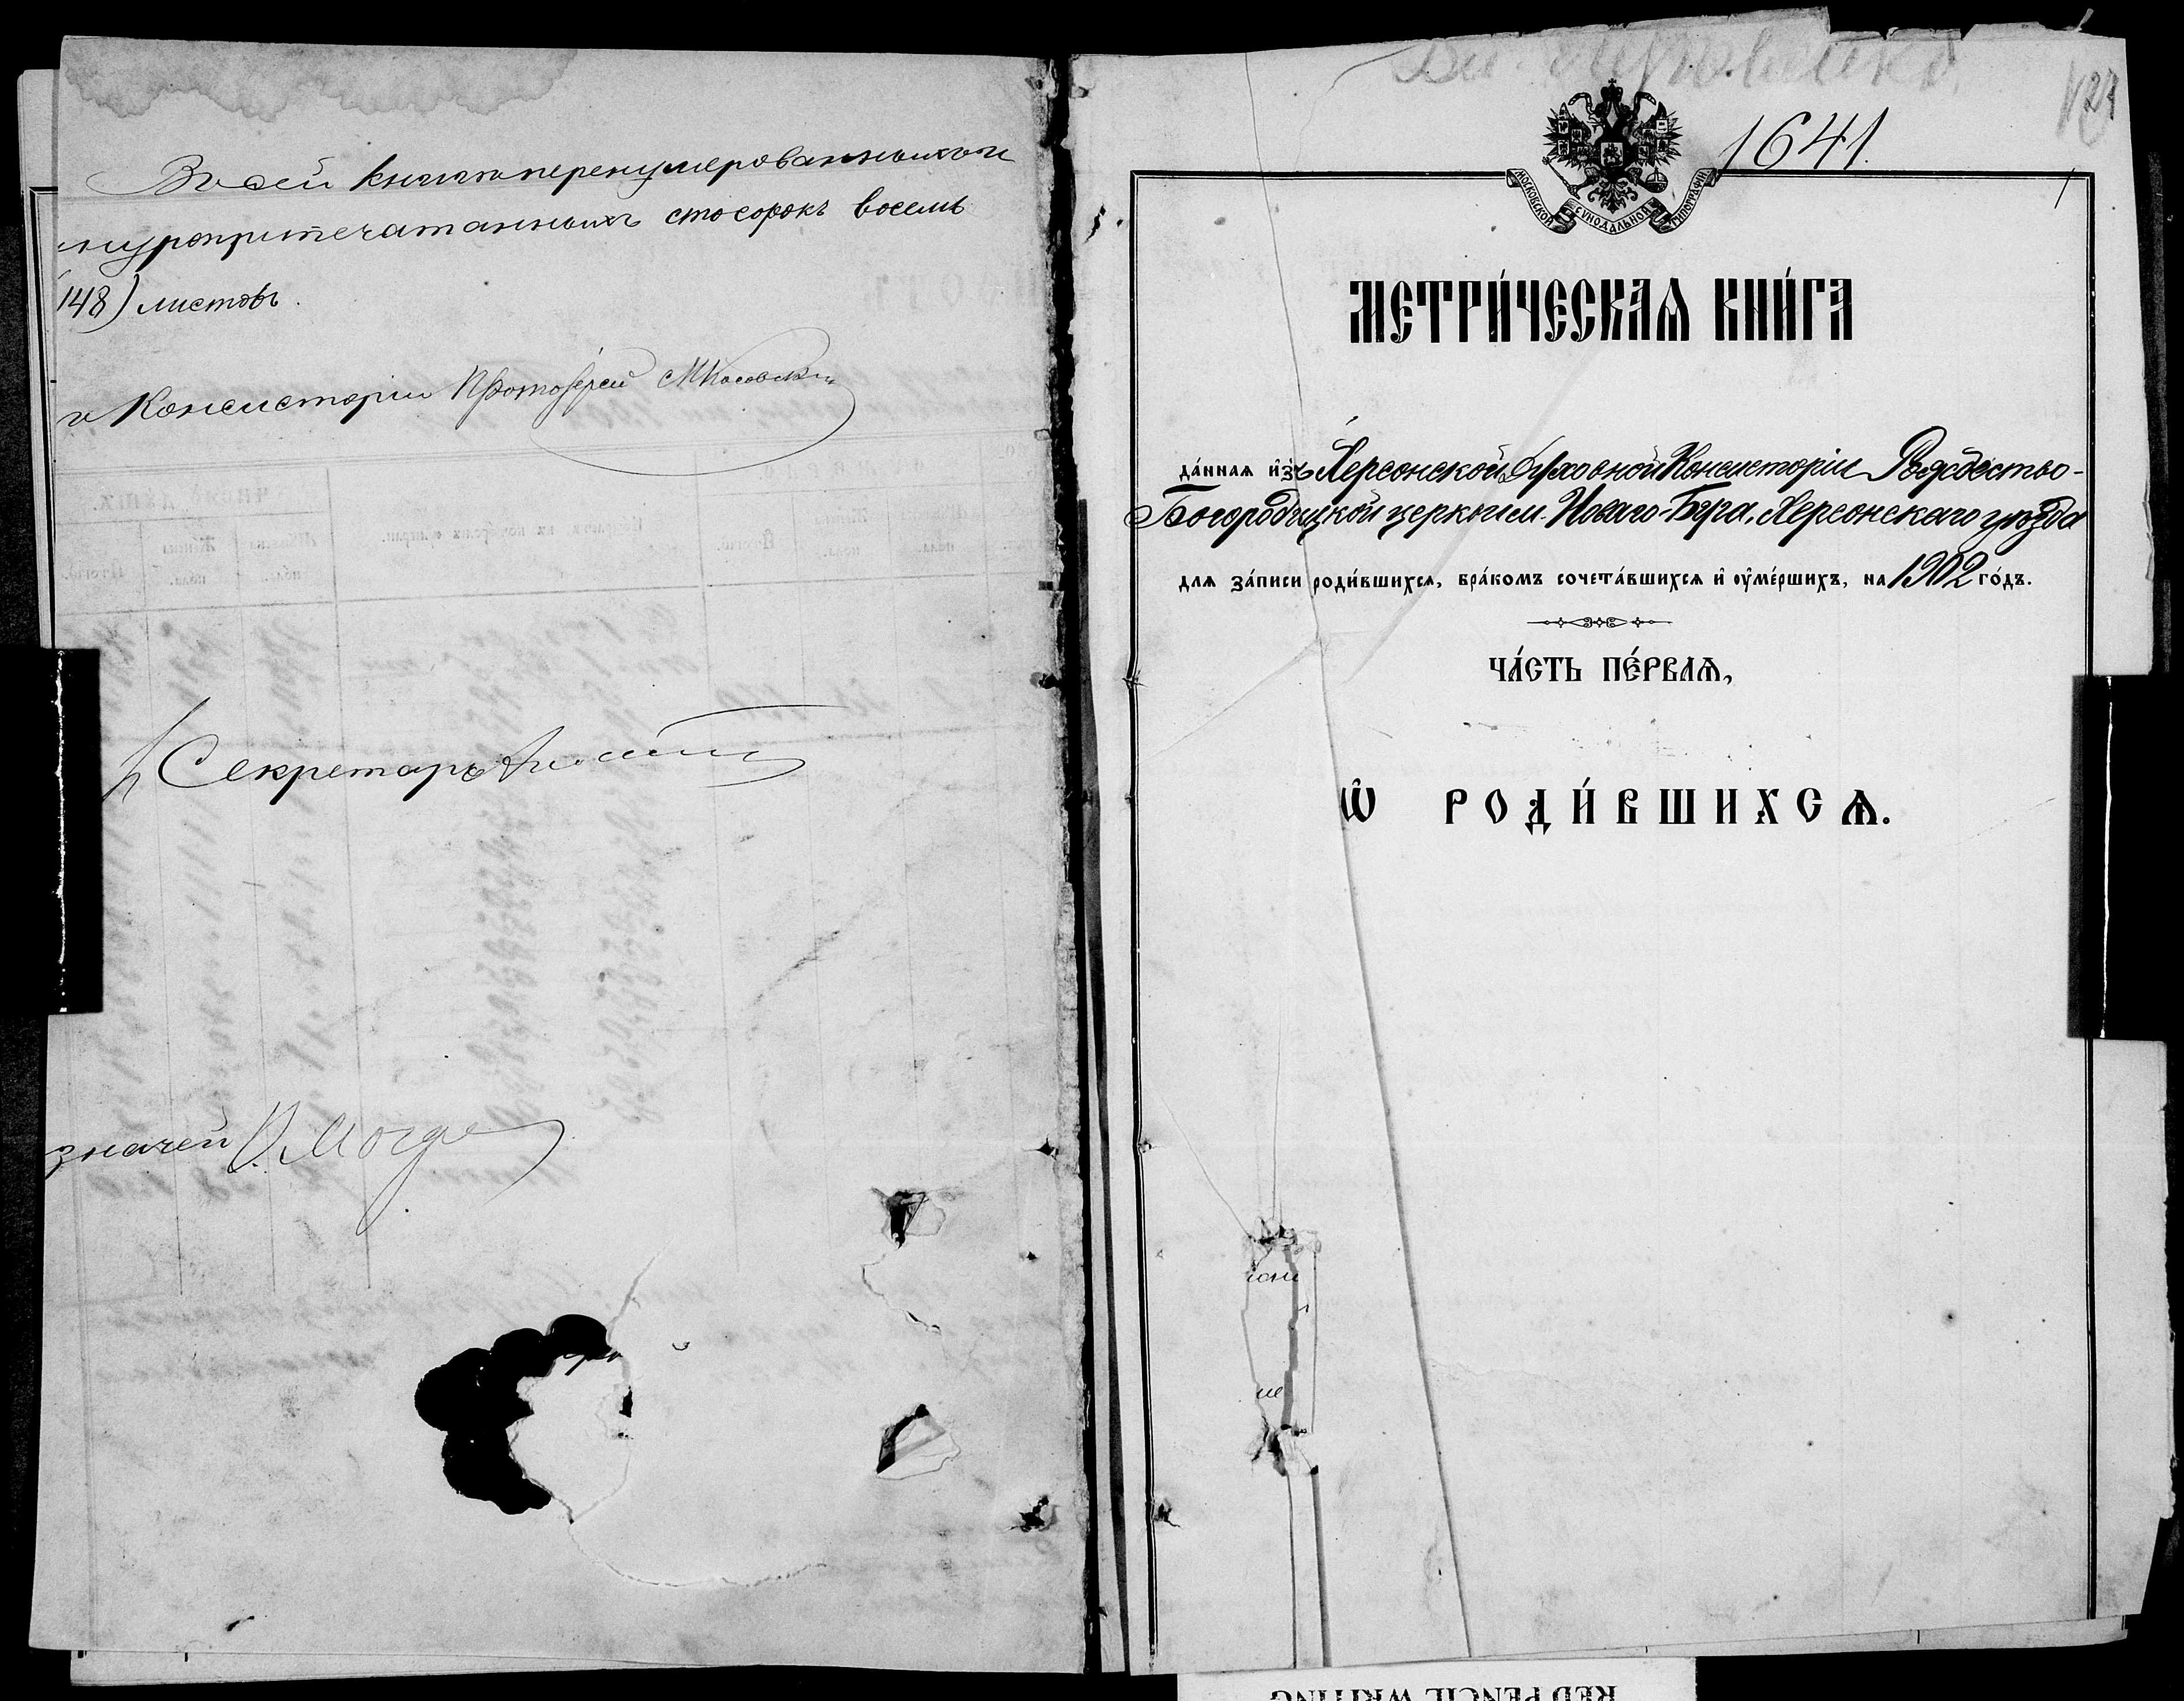 Въ сей книгѣ перенумерованныхъ и
шнуроприпечатанныхъ сто сорокъ восемь
148) листовъ.
Консисторіи Протоіерей
Секретарь
значей
1641.
1
МОСКОВСКОЙ СУНОДАЛЬНОЙ ТИПОГРАФІИ
МЕТРИ́ЧЕСКАѦ КНИ́ГА
да́ннаѧ и҆зъ Херсонской Духовной Консисторіи Рождество-
Богородицкой церкви м. Новаго-Буга, Херсонскаго уѣзда
для за́писи роди́вшихсѧ, бра́комъ сочета́вшихсѧ и҆ оу҆ме́ршихъ, на 1902 го́дъ.
ЧА́СТЬ ПЕ́РВАѦ,
Ѡ҆ РОДИ́ВШИХСѦ.
RED PENCIL WRITING